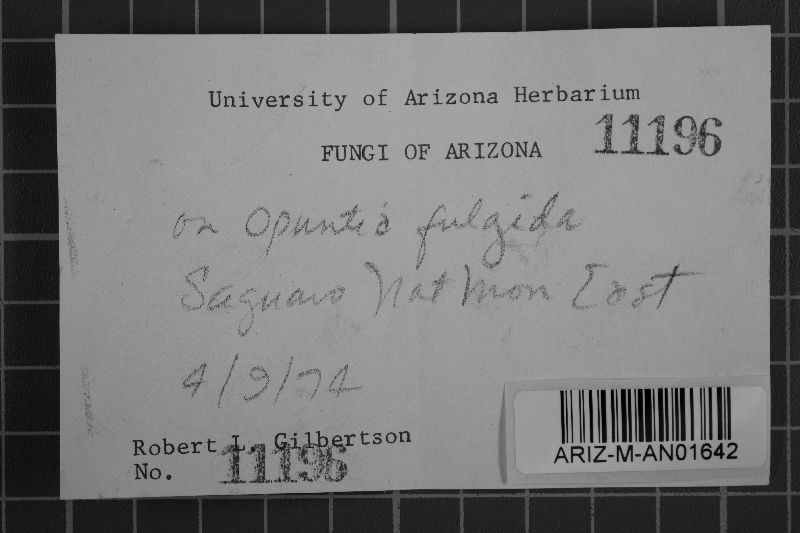 University of Arizona Herbarium
11196
FUNGI OF ARIZONA
on Opuntia fulgida
Saguaro Nat Mon East
4/9/74
Robert L. Gilbertson
No. 11196
ARIZ-M-AN01642